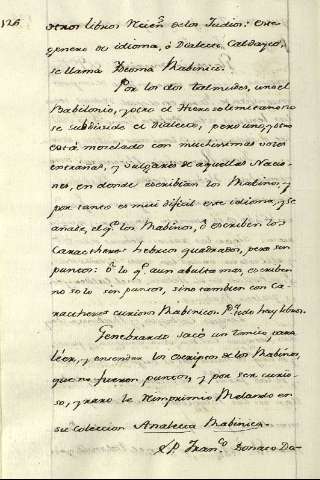 126
otros libros Recien.s de los Judios: este
genero de idioma, ó Dialecto Caldayco,
se llama Idioma Rabinico.
Por los dos talmudes, uno el
Babilonio, y otro el Hierosolimitano
se subdivide el Dialecto, pero uno, y otro
está mezclado con muchissimas voces
extrañas, y vulgares de aquellas Nacio-
nes, en donde escribian los Rabinos, y
por tanto es mui dificil este idioma, y se
añade, el q.e los Rabinos, ó escriben los
Caracthéres hebreos quadrados, pero sin
puntos: ó lo q.e aun abulta mas, escriben
no solo sin puntos, sino tambien con Ca-
racthéres cursivos Rabinicos. P.a todo hay libros.
Genebrardo sacó un tomito, para
léer, y entender los escriptos de los Rabinos,
que no fueron puntos, y por ser curio-
so, y raro le reimprimio Relando en
su coleccion Analecta Rabinica.
El P. Fran.co Donaco Do-